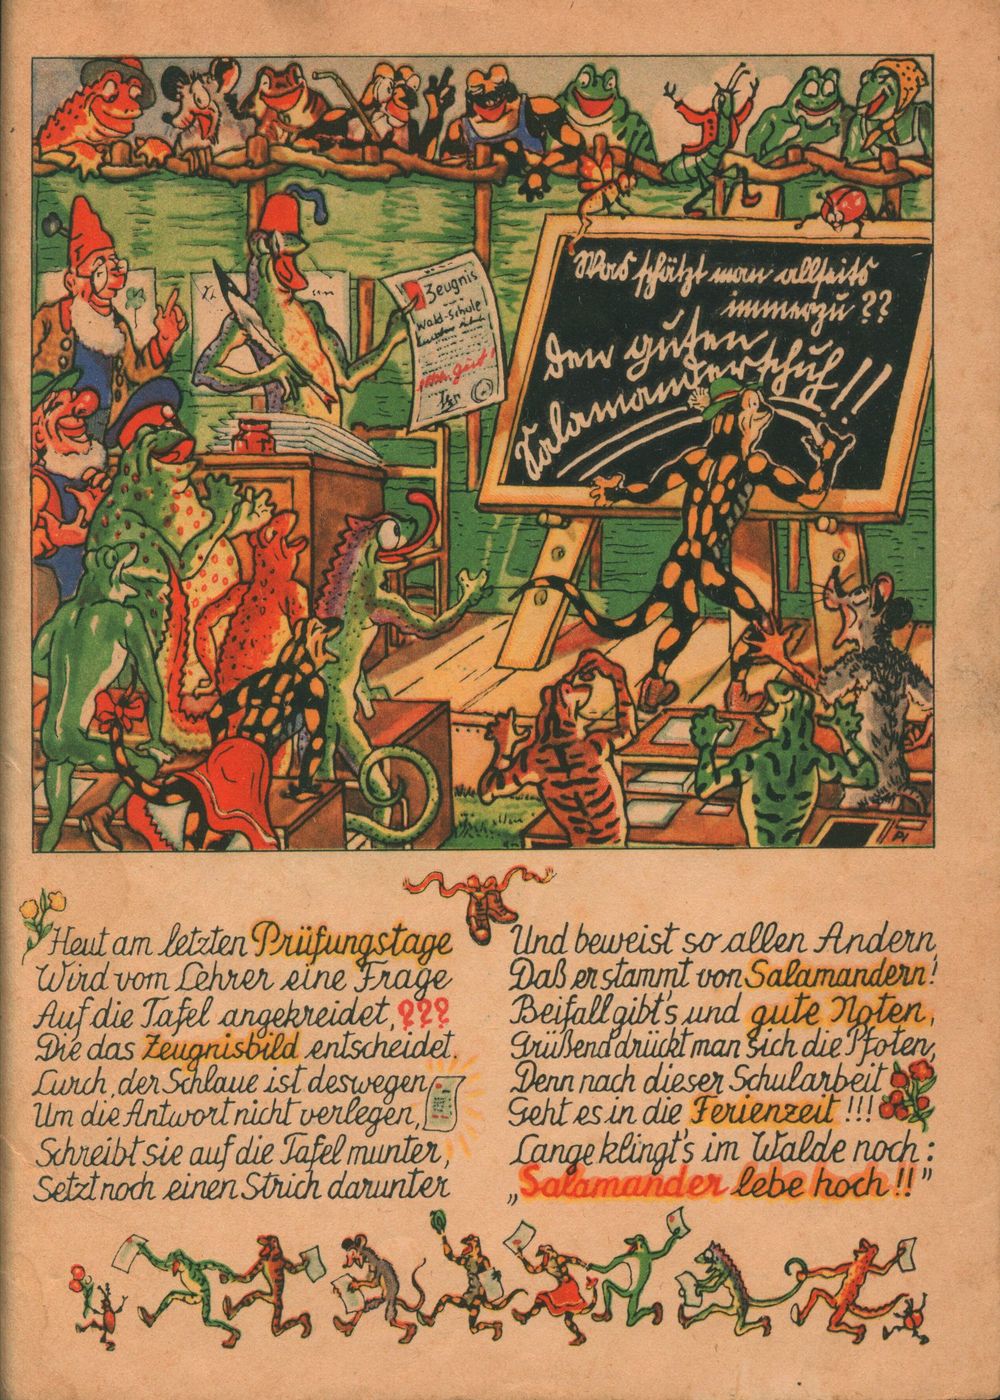 Zeugnis
Wald-Schule
Gut!
Was schätzt man allseits
immerzu ??
Den guten
Salamanderschuh!!
Heut am letzten Prüfungstage
Wird vom Lehrer eine Frage
Auf die Tafel angekreidet, ???
Die das Zeugnisbild entscheidet.
Lurch, der Schlaue ist deswegen
Um die Antwort nicht verlegen,
Schreibt sie auf die Tafel munter,
Setzt noch einen Strich darunter
Und beweist so allen Andern,
Daß er stammt von Salamandern!
Beifall gibt's und gute Noten,
Grüßend drückt man sich die Pfoten,
Denn nach dieser Schularbeit
Geht es in die Ferienzeit !!!
Lange klingt's im Walde noch:
„Salamander lebe hoch!!"